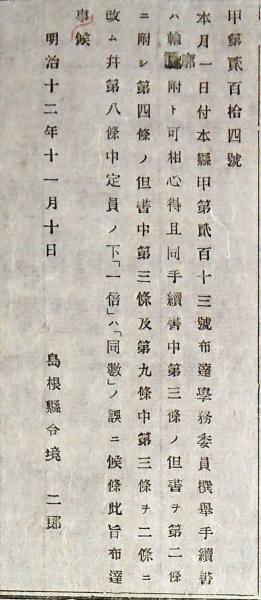 甲第貳百拾四號
本月一日付本縣甲第貳百十三號布達學務委員撰擧手續書
ハ輪廓附ト可相心得且同手續書中第三條ノ但書ヲ第二條
ニ附シ第四條ノ但書中第三條及第九條中第三條ヲ二條ニ
改ム幷第八條中定員ノ下「一倍」ハ「同數」ノ誤ニ候條此旨布達
事候
明治十二年十一月十日
島根縣令境二郎